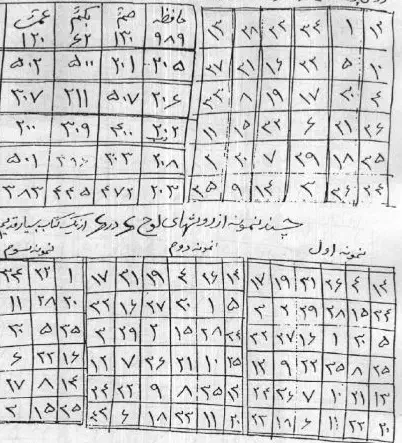 حافظه صم بکم عمی
۹۸۹ ۱۳۰ ۶۲ ۱۲۰
۲۰۵ ۲۰۱ ۵۰۰ ۵۰۳
۲۰۶ ۵۰۷ ۲۱۱ ۳۰۷
۲۰۲ ۴۰۰ ۳۰۹ ۲۰۰
۲۰۸ ۳۰۳ ۵۰۱
۲۰۳ ۴۷۲ ۴۴۵ ۳۸۳
۱۲ ۱ ۳۴ ۲۳ ۲۸ ۱۳
۱۰ ۵ ۲۲ ۱۶ ۳۱ ۲۷
۴ ۳۰ ۱۷ ۱۹ ۸ ۳۳
۲۶ ۲۱ ۶ ۳۲ ۱۵ ۱۱
۳۵ ۱۸ ۲۹ ۷ ۲۰ ۲
۲۴ ۳۶ ۳ ۱۴ ۹ ۲۵
چند نمونه از روشهای لوح ۶ در ۶ از یک کتاب بسیار قدیمی
نمونه اول
۱۴ ۴ ۲۶ ۳۱ ۱۹ ۱۷
۳۴ ۱۵ ۲۸ ۲۹ ۲ ۳
۵ ۳۰ ۱ ۱۶ ۲۷ ۳۲
۲۵ ۸ ۳۵ ۲۲ ۹ ۱۲
۱۳ ۲۱ ۱۰ ۷ ۳۶ ۲۴
۲۰ ۳۳ ۱۱ ۶ ۱۸ ۲۳
نمونه دوم
۱۴ ۲۶ ۴ ۱۹ ۳۱ ۱۷
۵ ۱ ۳۰ ۲۷ ۱۶ ۳۲
۳۴ ۲۸ ۱۵ ۲ ۲۹ ۳
۲۵ ۱۰ ۲۱ ۳۶ ۷ ۱۲
۱۳ ۳۵ ۸ ۹ ۲۲ ۲۴
۲۰ ۱۱ ۳۳ ۱۸ ۶ ۲۳
نمونه سوم
۱ ۲۳ ۳۴
۲۰ ۲۸ ۱۱
۳۵ ۵ ۳۰
۱۶ ۳۲ ۶
۱۴ ۸ ۲۷
۲۵ ۱۵ ۳